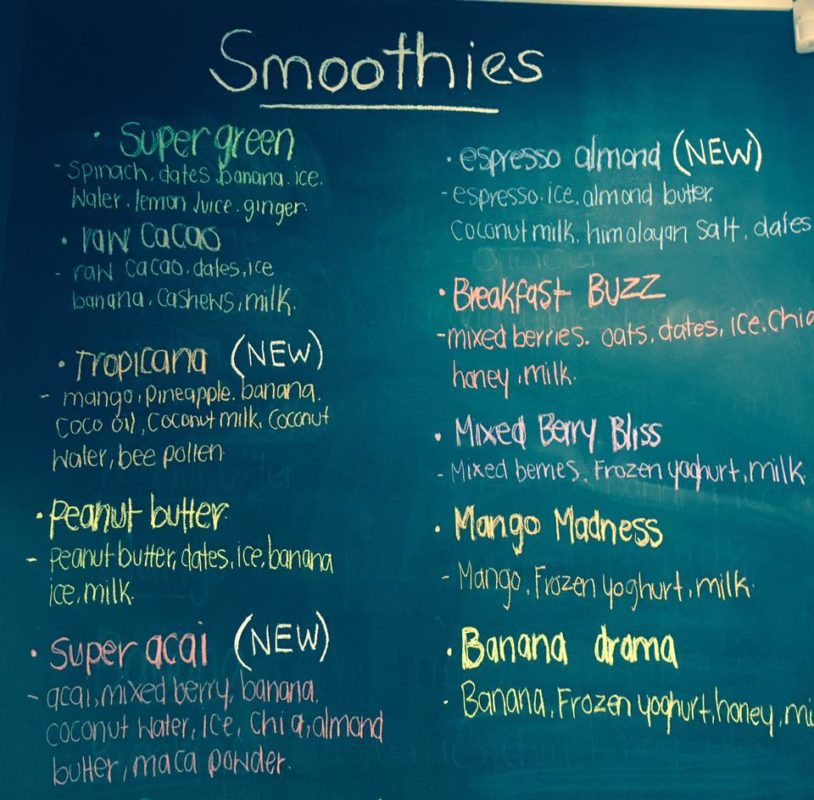 Smoothies
• Super green
- Spinach. dates. banana. ice.
Water. lemon Juice. ginger.
• raw Cacao
- raw Cacao. dates, ice
banana. Cashews, milk.
• Tropicana (NEW)
- mango, pineapple. banana.
Coco oil, Coconut milk, Coconut
Water, bee pollen
• Peanut butter
- Peanut butter, dates, ice, banana
ice, milk.
• Super acai (NEW)
- acai, mixed berry, banana.
coconut Water, Ice, Chia, almond
butter, maca powder.
• espresso almond (NEW)
- espresso. ice. almond butter.
Coconut milk, himalayan Salt, dates
• Breakfast BUZZ
- mixed berries. oats, dates, ICE, Chia
honey, milk.
• Mixed Berry Bliss
- Mixed berries. Frozen yoghurt, milk
• Mango Madness
- Mango, Frozen yoghurt, milk.
• Banana drama
- Banana, Frozen yoghurt, honey, mi